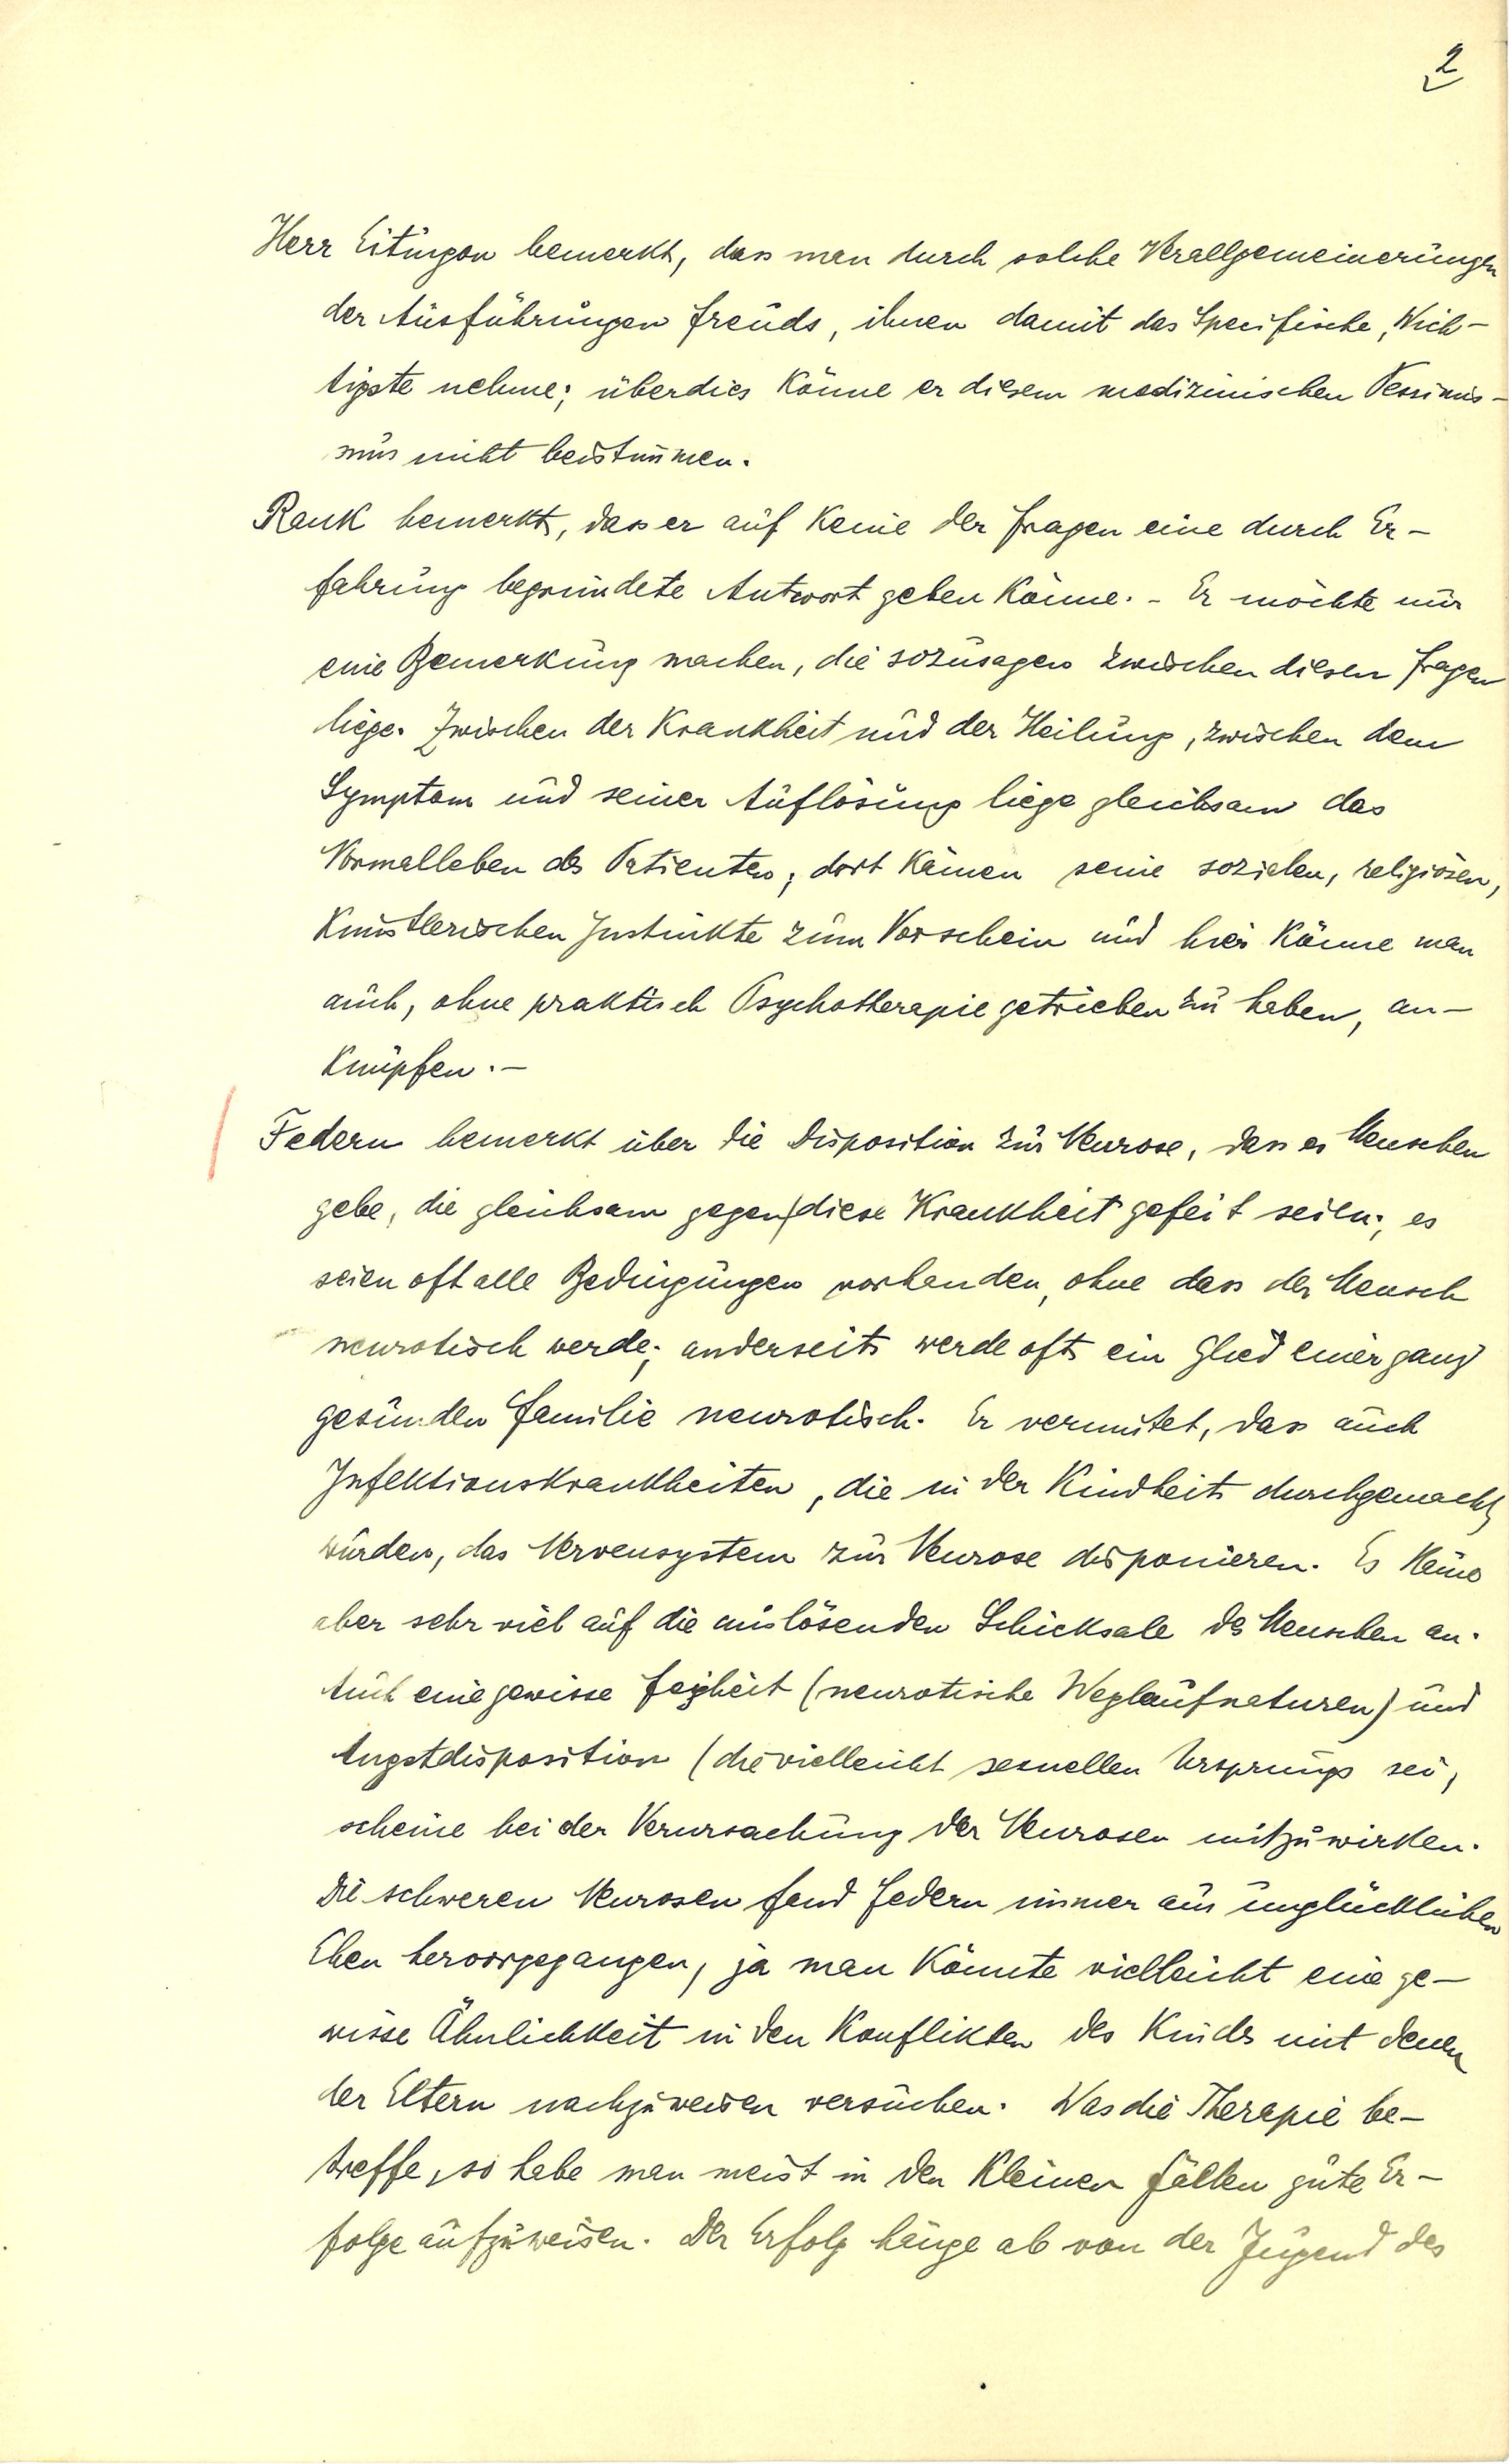 2
Herr Eitingon bemerkt, dass man durch solche Verallgemeinerungen
der Ausführungen Freuds, ihnen damit das Specifische, Wich-
tigste nehme; überdies könne er diesem medizinischen Pessimis-
mus nicht beistimmen.
Rank bemerkt, dass er auf keine der Fragen eine durch Er-
fahrung begründete Antwort geben könne. - Er möchte nur
eine Bemerkung machen, die sozusagen zwischen diesen Fragen
liege. Zwischen der Krankheit und der Heilung, zwischen dem
Symptom und seiner Auflösung liege gleichsam das
Normalleben des Patienten; dort kämen seine sozialen, religiösen,
künstlerischen Instinkte zum Vorschein und hier könne man
auch, ohne praktisch Psychotherapie getrieben zu haben, an-
knüpfen. -
Federn bemerkt über die Disposition zur Neurose, dass es Menschen
gebe, die gleichsam gegen diese Krankheit gefeit seien; es
seien oft alle Bedingungen vorhanden, ohne dass der Mensch
neurotisch werde; anderseits werde oft ein Glied einer ganz
gesunden Familie neurotisch. Er vermutet, dass auch
Infektionskrankheiten, die in der Kindheit durchgemacht
würden, das Nervensystem zur Neurose disponieren. Es käme
aber sehr viel auf die auslösenden Schicksale des Menschen an.
Auch eine gewisse Feigheit (neurotische Weglaufnaturen) und
Angstdisposition (die vielleicht sexuellen Ursprungs sei,
scheine bei der Verursachung der Neurosen mitzuwirken.
Die schweren Neurosen fand Federn immer aus unglücklichen
Ehen hervorgegangen, ja man könnte vielleicht eine ge-
wisse Ähnlichkeit in den Konflikten des Kindes mit denen
der Eltern nachzuweisen versuchen. Was die Therapie be-
treffe, so habe man meist in den kleinen Fällen gute Er-
folge aufzuweisen. Der Erfolg hänge ab von der Jugend des